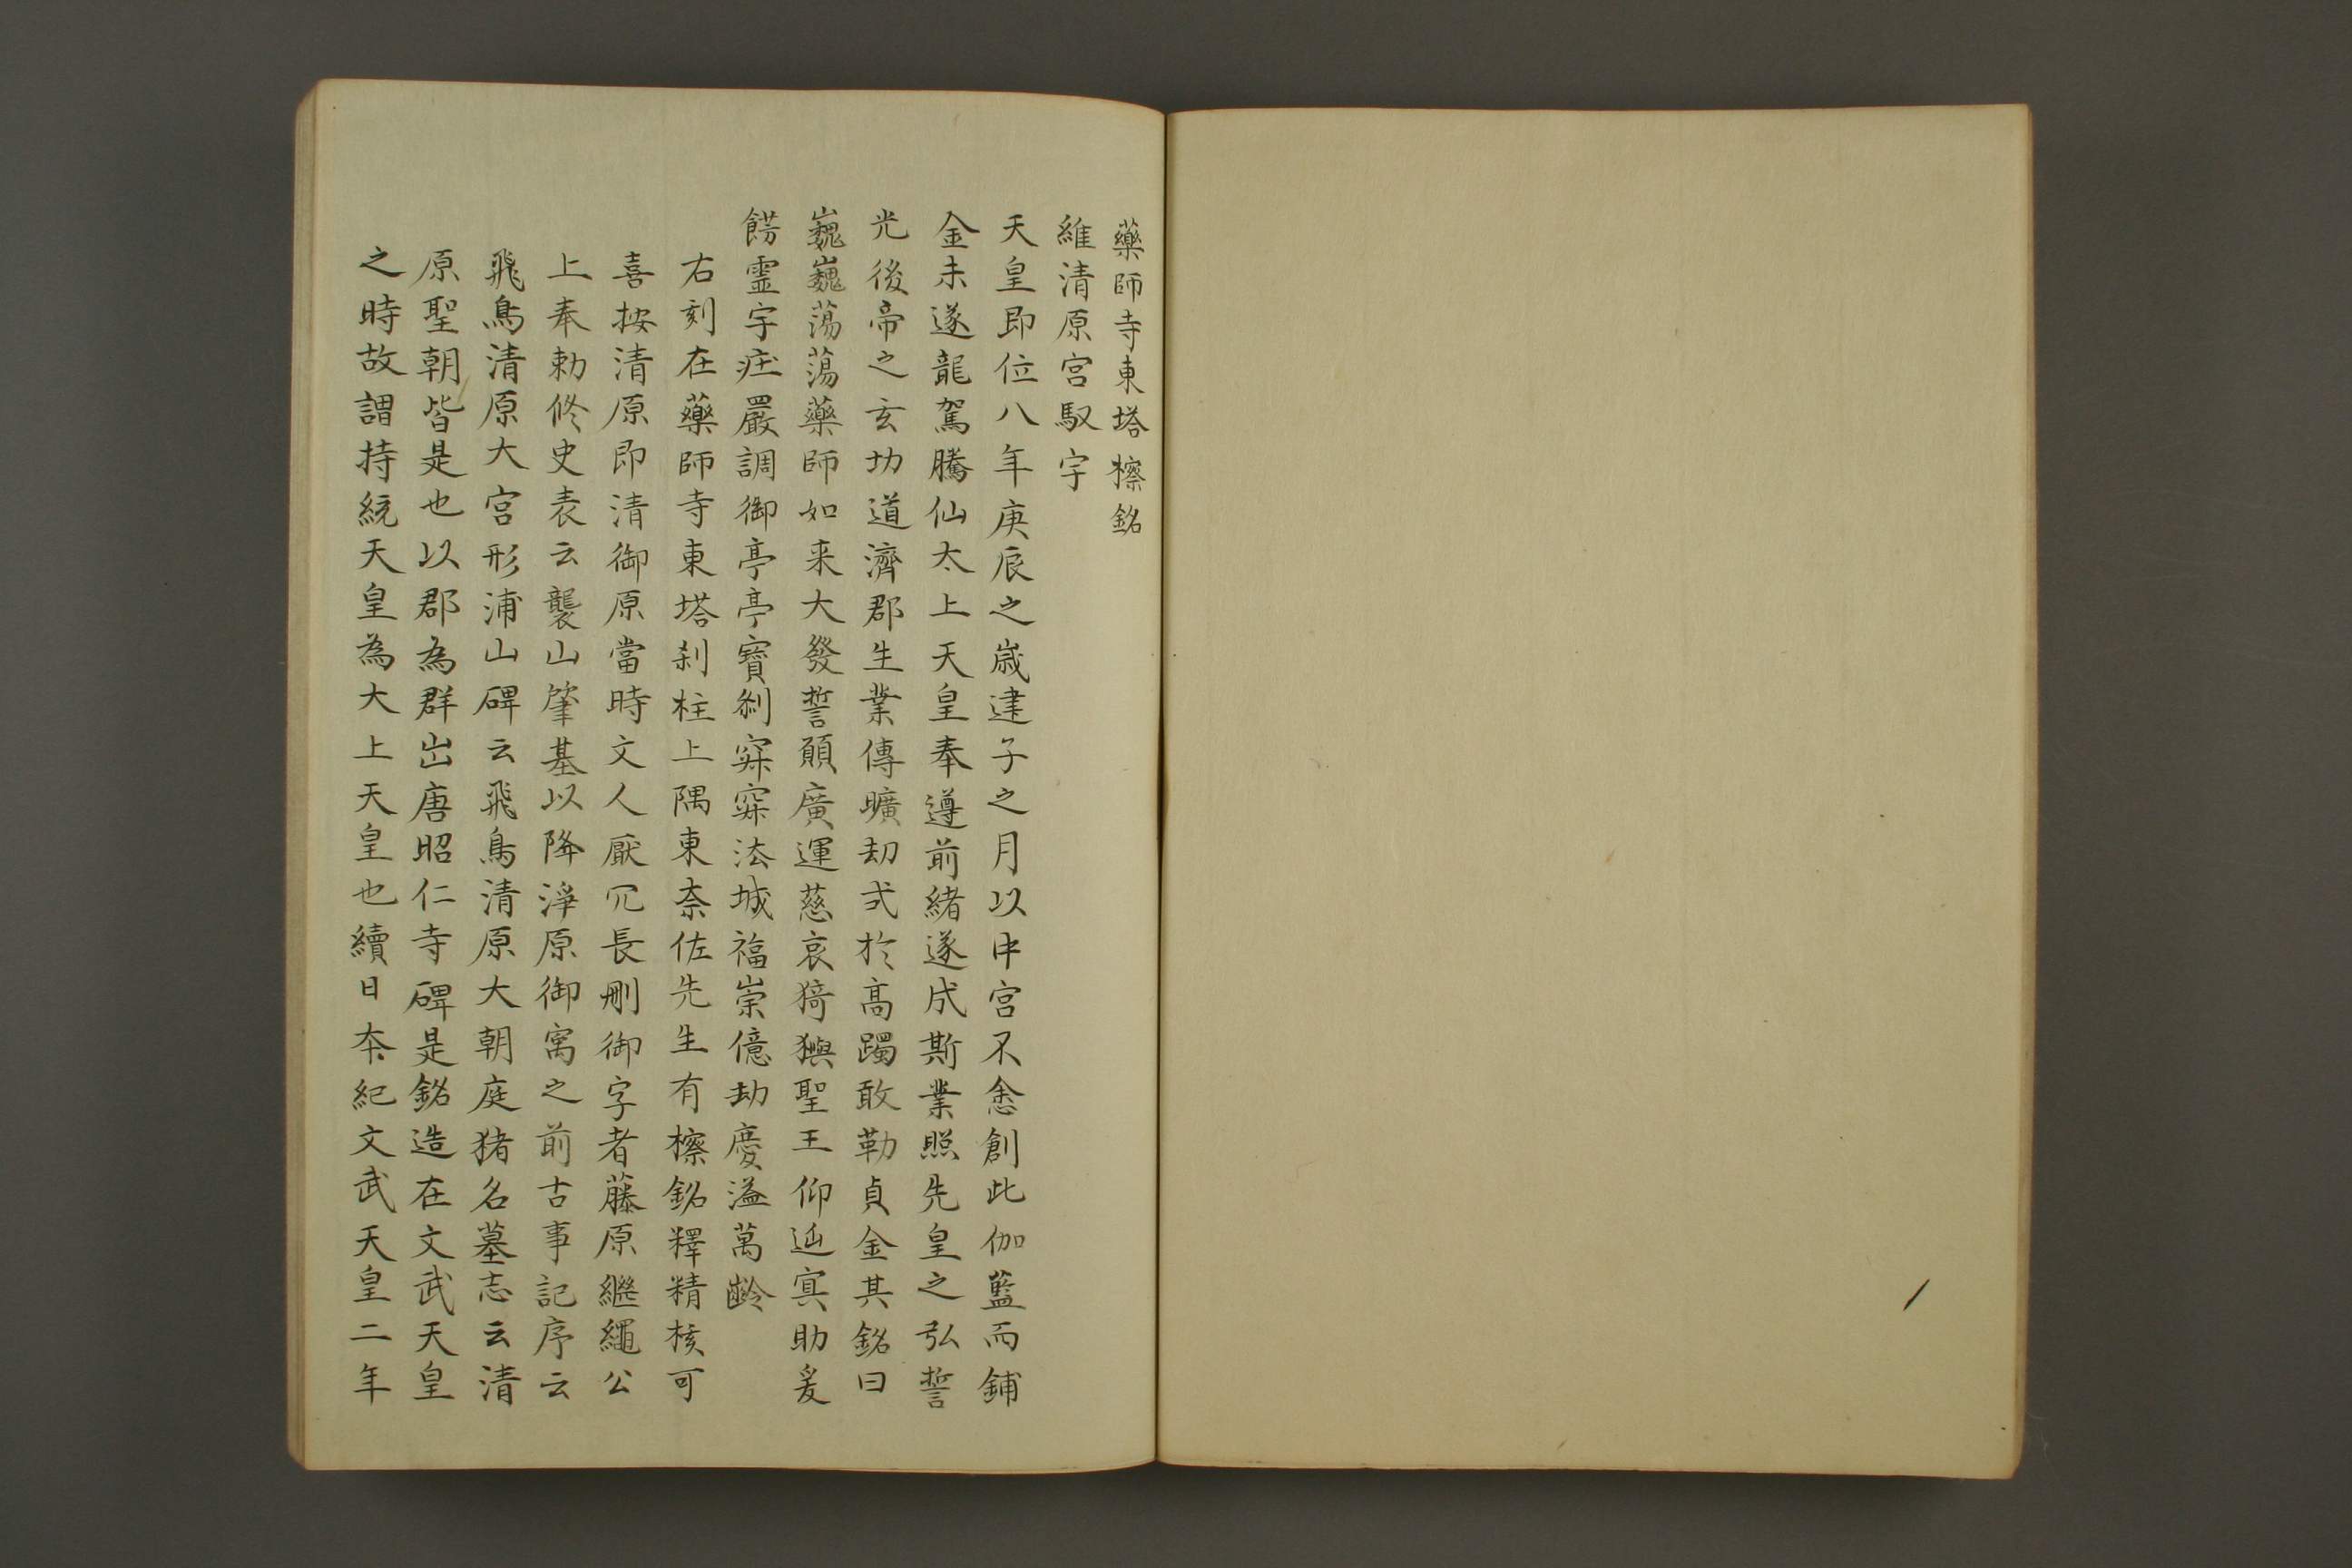 藥師寺東塔檫銘
維清原宮馭宇
天皇即位八年庚辰之歳建子之月以中宮不悆創此伽藍而鋪
金未遂龍駕騰仙太上天皇奉遵前緒遂成斯業照先皇之弘誓
光後帝之玄功道濟郡生業傳曠劫式於高躅敢勒貞金其銘曰
巍巍蕩蕩藥師如来大發誓願廣運慈哀猗㺞聖王仰延冥助爰
餝霊宇疘嚴調御亭亭寶刹寀寀法城福崇億劫慶溢萬齢
右刻在藥師寺東塔刹柱上隅東奈佐先生有檫銘釋精核可
喜按清原即清御原當時文人厭冗長刪御字者藤原繼繩公
上奉勅修史表云襲山肇基以降淨原御寓之前古事記序云
飛鳥清原大宮形浦山碑云飛鳥清原大朝庭猪名墓志云清
原聖朝皆是也以郡為群出唐昭仁寺碑是銘造在文武天皇
之時故謂持統天皇為大上天皇也續日夲紀文武天皇二年